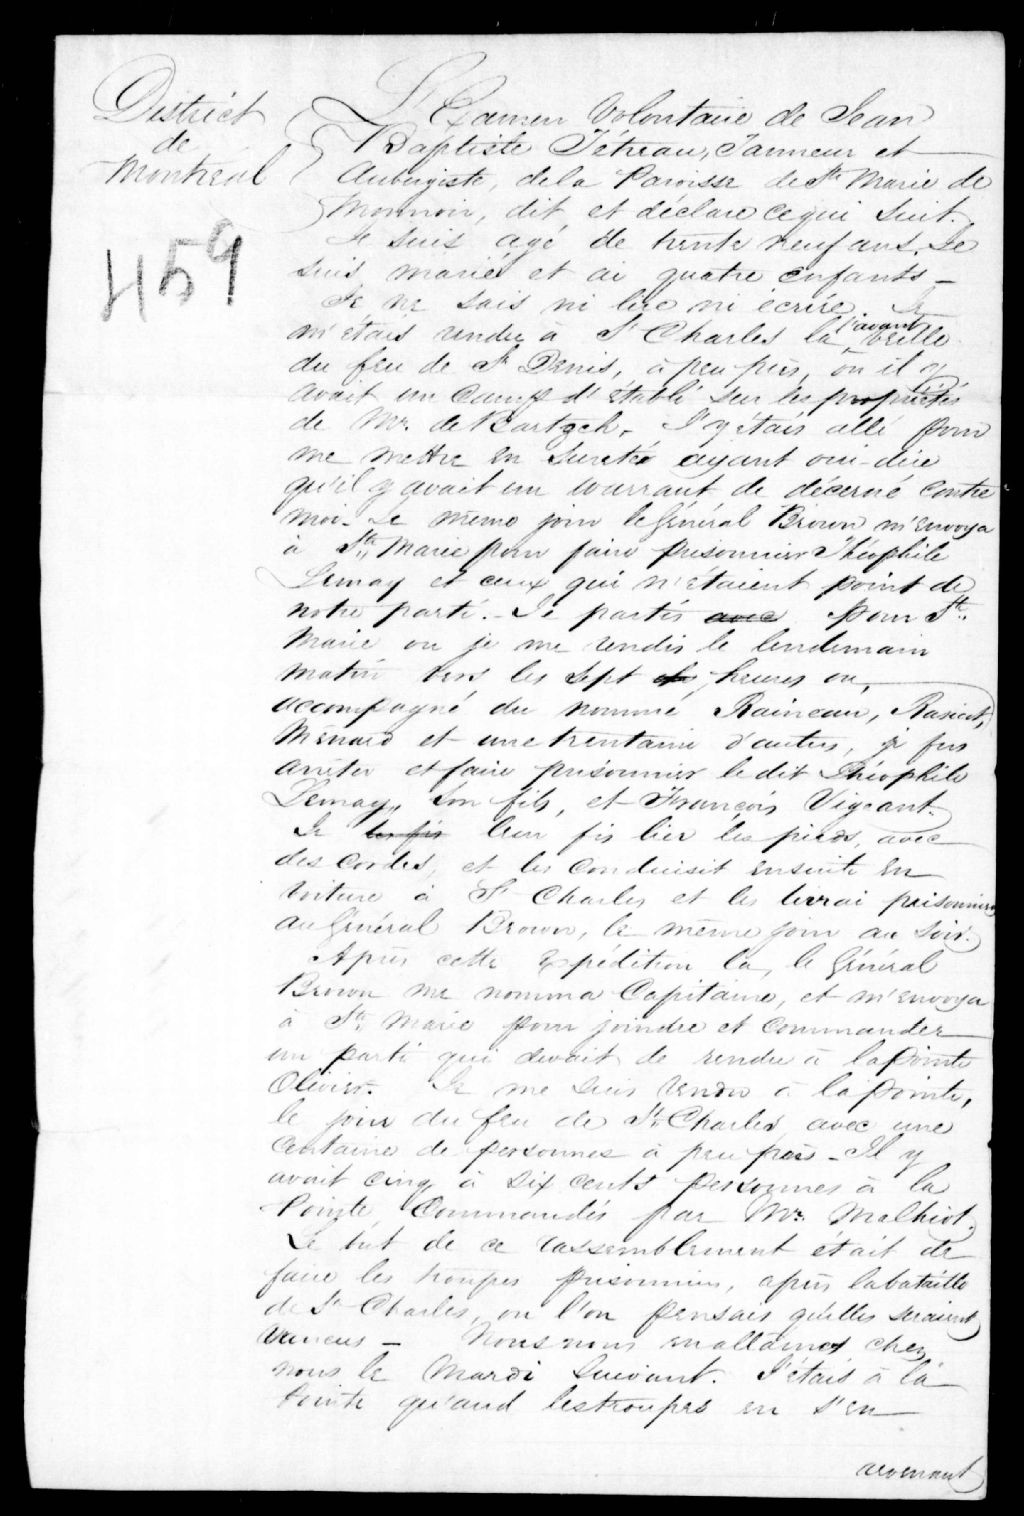 District
de
Montréal
459
L'Examen Volontaire de Jean
Baptiste Tétreau, Tanneur et
Aubergiste, de la Paroisse de Ste Marie de
Monnoir, dit et déclare ce qui suit.
Je suis agé de trente neuf ans. Je
suis marié et ai quatre enfants —
Je ne sais ni lire ni écrire. Je
m'étais rendu à St Charles la l'avant veille
du feu de St Denis, à peu près, où il y
avait un camp d'établi sur les propriétés
de Mr. de Bartzch. J'y étais allé pour
me mettre en sureté ayant oui-dire
qu'il y avait un warrant de décerné contre
moi. Le même jour le Général Brown m'envoya
à Ste Marie pour faire prisonnier Théophile
Lemay et ceux qui n'étaient point de
notre parti. — Je partis avec pour Ste
Marie ou je me rendis le lendemain
matin vers les sept heures ou,
accompagné du nommé Raineau, Rasicot,
Ménard et une trentaine d'autres, je fus
arrêter et faire prisonnier le dit Théophile
Lemay, son fils, et François Vigeant.
Je les fis leur fis lier les pieds, avec
des cordes, et les conduisit ensuite en
voiture à St Charles et les livrai prisonniers
au Général Brown, le même jour au soir.
Après cette expédition la, le Général
Brown me nomma Capitaine, et m'envoya
à Ste Marie pour joindre et commander
un parti qui devait se rendre à la Pointe
Olivier. Je me suis rendu à la Pointe,
le jour du feu de St Charles avec une
centaine de personnes à peu près — Il y
avait cinq à six cents personnes à la
Pointe Commandés par Mr. Malhiot.
Le but de ce rassemblement était de
faire les troupes prisonniers, après la bataille
de St Charles, ou l'on pensais qu'elles seraient
vaincus — Nous nous en allames chez
nous le Mardi suivant. J'étais à la
Pointe qu'and les troupes en s'en
revenant